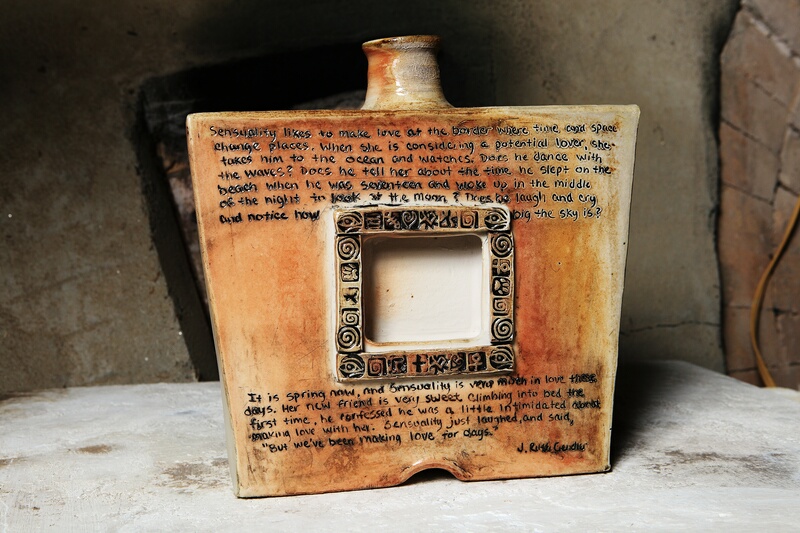 Sensuality likes to make love at the border where time and space
change places. When she is considering a potential lover, she
takes him to the ocean and watches. Does he dance with
the waves? Does he tell her about the time he slept on the
beach when he was seventeen and woke up in the middle
of the night to look at the moon? Does he laugh and cry
and notice how big the sky is?
It is spring now, and Sensuality is very much in love these
days. Her new friend is very sweet. Climbing into bed the
first time, he confessed he was a little intimidated about
making love with her. Sensuality just laughed, and said,
"But we've been making love for days."
J. Ruth Gendler